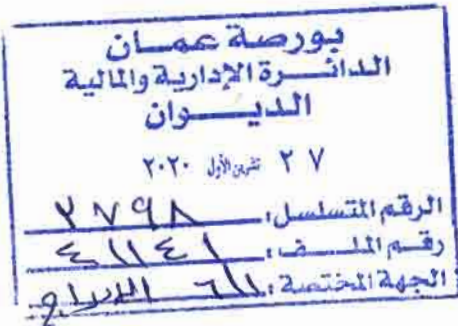 بورصة عمان
الدائرة الإدارية والمالية
الديوان
٢٧ تشرين الأول ٢٠٢٠
الرقم المتسلسل: ٢٧٩٨
رقم الملف: ٤١١٤١
الجهة المختصة: